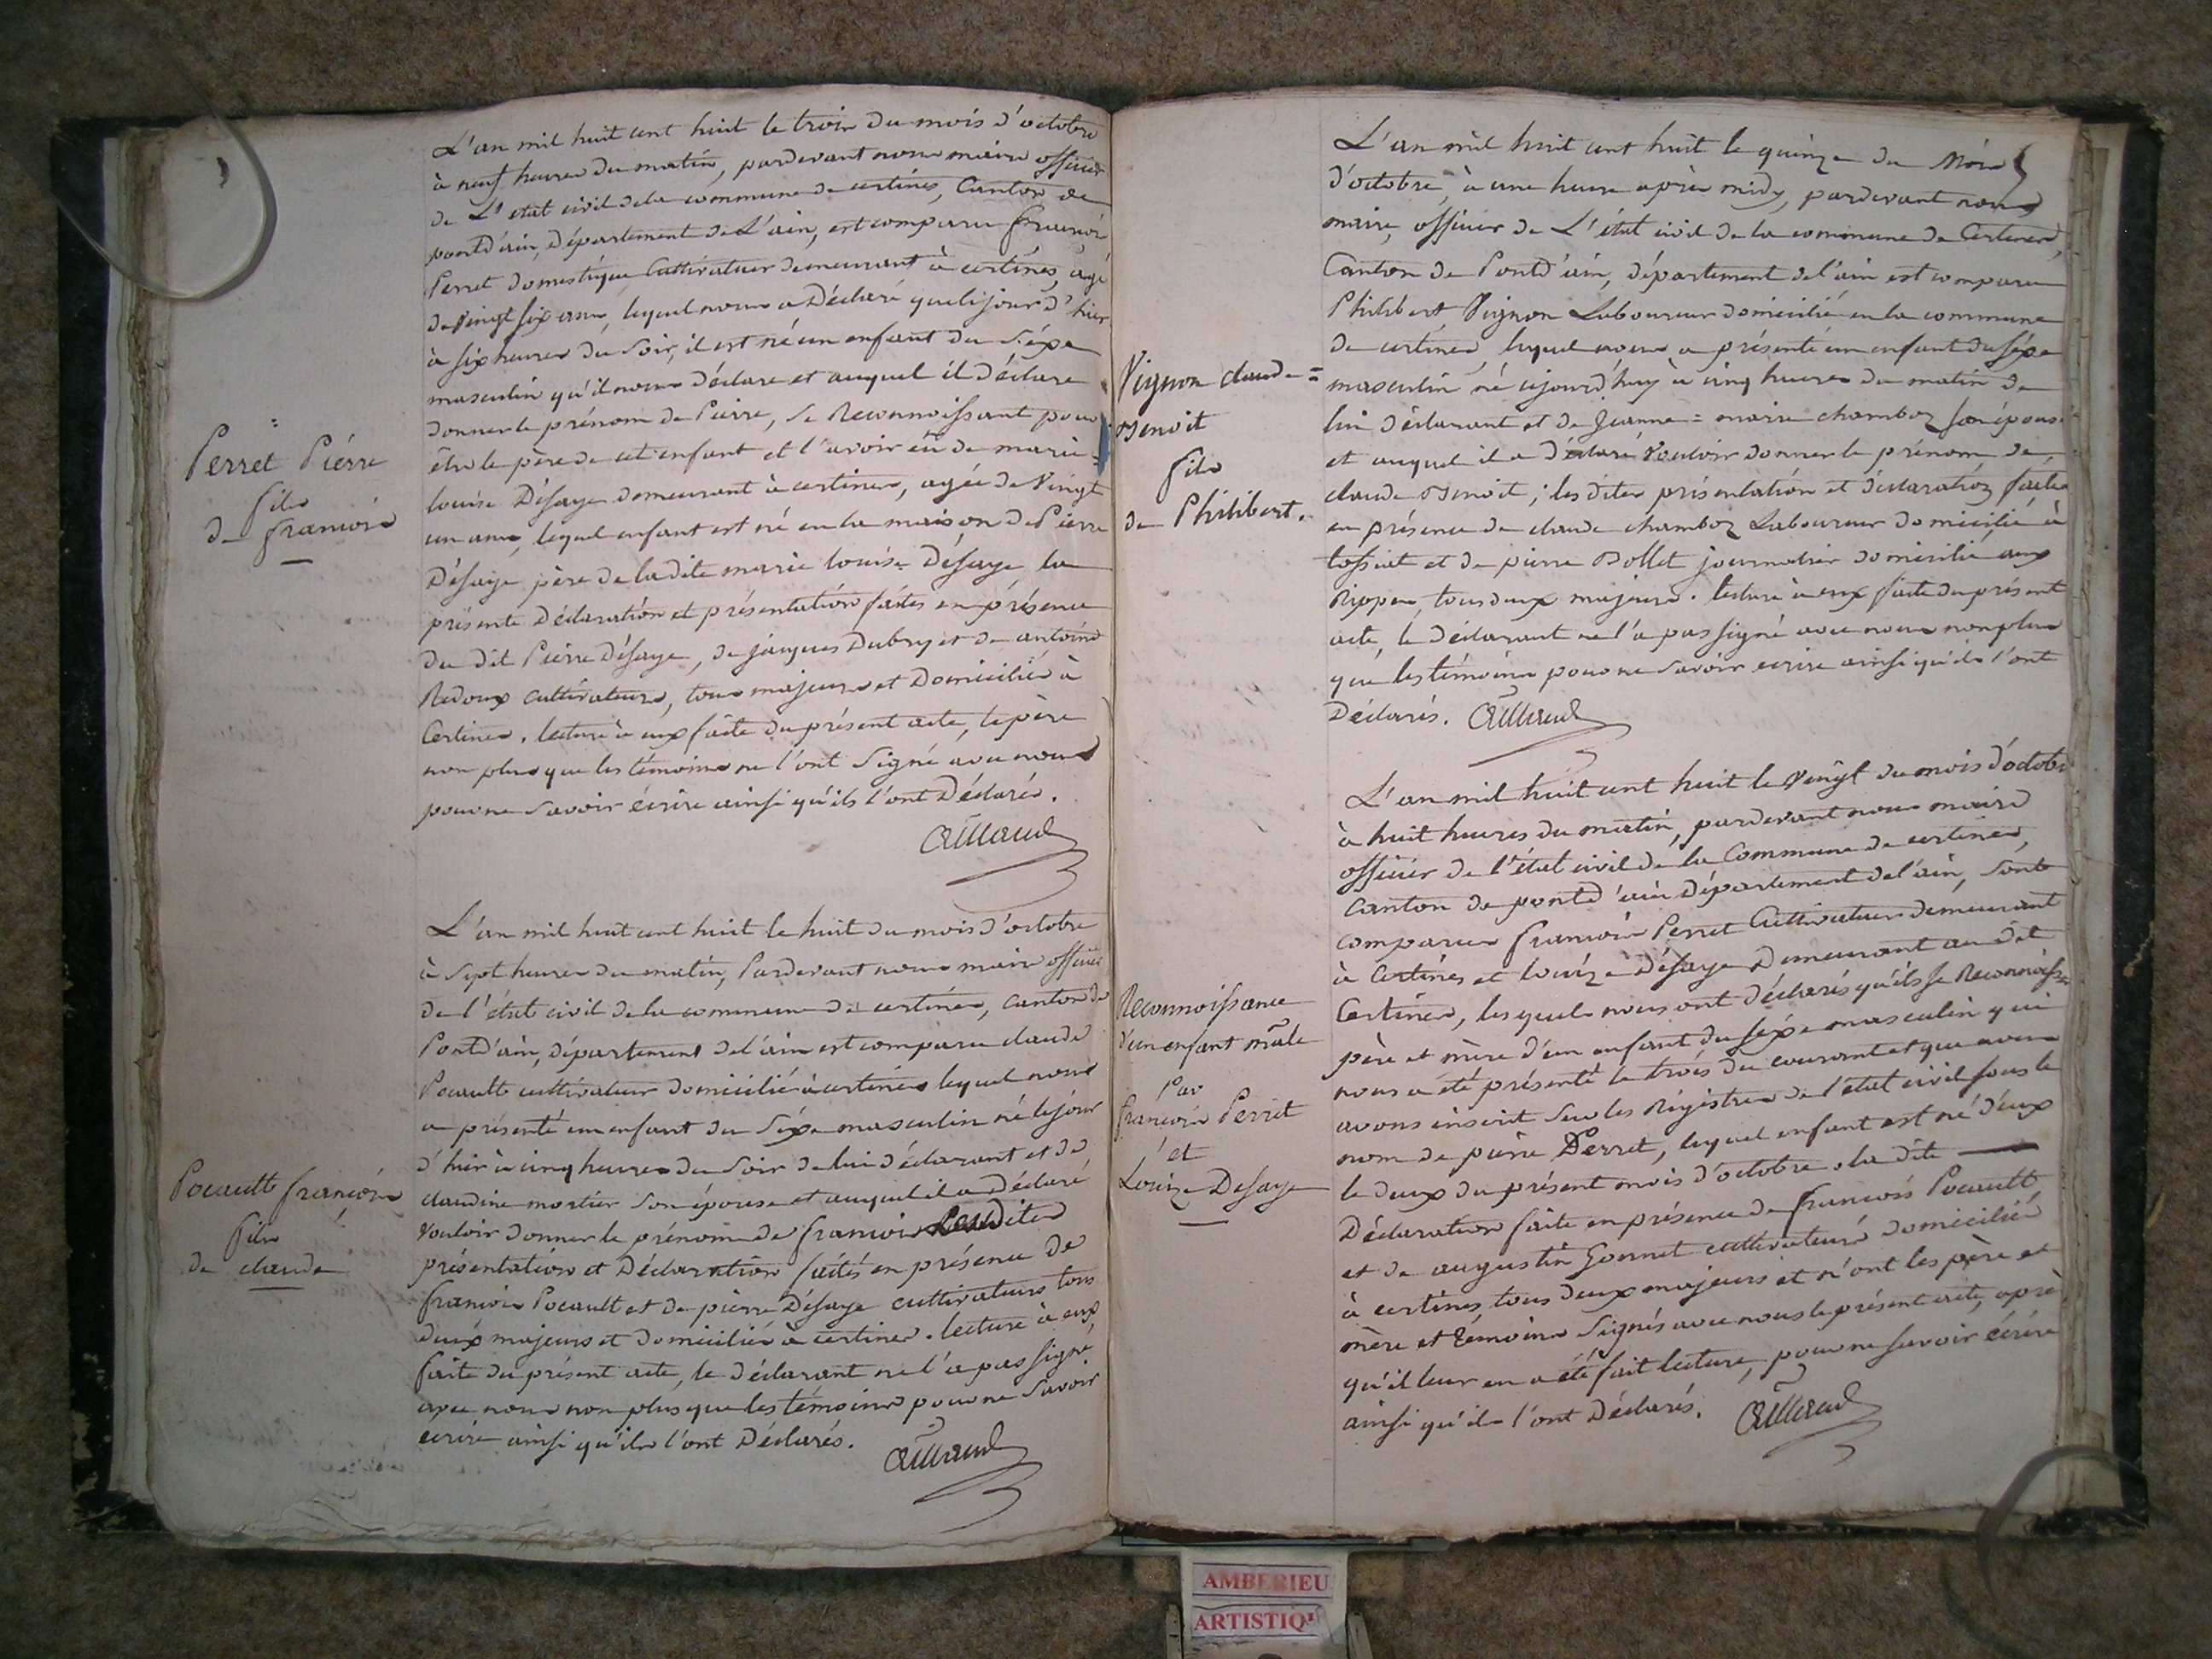 Perret Piérre
fils
de françois
L'an mil huit cent huit le trois du mois d'octobre
à neuf heures du matin, pardevant nous maire officier
de L'état civil de la commune de certines, Canton de
pontd'ain, Département de L'ain, est comparu françois
Perret domestique Cultivateur demeurant à certines, agé
de vingt six ans, lequel nous a Déclaré que le jour d'hier
à six heures du Soir, il est né un enfant du Séxe
masculin qu'il nous déclare et auquel il déclare
donner le prénom de Pierre, se Reconnoissant pour
être le père de cet enfant et l'avoir eu de marie=
louise Désaye demeurant à certines, agée de Vingt
un ans, lequel enfant est né en la maison de Pierre
Désaye père de la dite marie louise Désaye la
présente Déclaration et présentation faites en présence
du dit Piérre Désaye, de jacques Dubry et de antoine
Redoux cultivateurs, tous majeurs et Domiciliés à
Certines. lecture à eux faite du présent acte, le père
non plus que les témoins ne l'ont Signé avec nous
pour ne Savoir écrire ainsi qu'ils l'ont Déclarés.
Pocault françois
fils
de claude
L'an mil huit cent huit le huit du mois d'octobre
à Sept heures du matin, Pardevant nous maire officier
de l'état civil de la commune de certines, canton de
Pontd'ain, département de l'ain est comparu claude
Pocault cultivateur domicilié à certines lequel nous
a présenté un enfant du Séxe masculin né le jour
d'hier à cinq heures du Soir de lui déclarant et de
claudine mortier Son épouse et auquel il a Déclaré
vouloir donner le prénom de françois Les dites
présentation et Déclaration faités en présence de
françois Pocault et de pièrre Désaye cultivateurs tous
deux majeurs et domiciliés à certines. lecture à eux,
faite du présent acte, le déclarant ne l'a pas signé
avec nous non plus que les témoins pour ne Savoir
écrire ainsi qu'ils l'ont Déclarés.
Vignon claude=
Benoit
fils
de Philibert.
L'an mil huit cent huit le quinze du Mois
d'octobre, à une heure après midy, pardevant nous
maire, officier de L'état civil de la commune de Certines,
Canton de Pontd'ain, département de l'ain est comparu
Philibert Vignon Laboureur domicilié en la commune
de certines, lequel nous a présenté un enfant du séxe
masculin né cejourd'huy à cinq heures du matin de
lui déclarant et de Jeanne=marie chamboz son épouse
et auquel il a déclaré Vouloir donner le prénom de
claude Benoit; les dites présentation et déclaration faites
en présence de claude chamboz Laboureur domicilié à
tossiat et de pierre Bollet journalier domicilié aux
Rippes, tous deux majeurs. lecture à eux faite du présent
acte, le déclarant ne l'a pas signé avec nous non plus
que les témoins pour ne Savoir écrire ainsi qu'ils l'ont
Déclarés.
Reconnoissance
d'un enfant mâle
Par
françois Perret
et
Louize Desaye
L'an mil huit cent huit le Vingt du mois d'octobre
à huit heures du matin, pardevant nous maire
officiér de l'état civil de la Commune de certines,
canton de pontd'ain Département de l'ain, Sont
comparus françois Perret Cultivateur demeurant
à Certines et Louize Désaye Demeurant au dit
Certines, lesquels nous ont déclarés qu'ils Se Reconnoisse
père et mère d'un enfant du Séxe masculin qui
nous a été présenté le trois du courant et que nous
avons inscrit Sur les Régistres de l'état civil sous le
nom de pièrre Perret, lequel enfant est né d'eux
le deux du présent mois d'octobre. la dite
Déclaration faite en présence de françois Pocault
et de augustin Gonnet cultivateurs domiciliés
à certines, tous deux majeurs et n'ont les père et
mère et témoins Signés avec nous le présent acte, après
qu'il leur en a été fait lecture, pour ne savoir écrire
ainsi qu'ils l'ont Déclarés.
AMBERIEU
ARTISTIQ